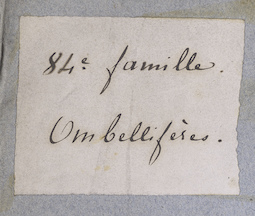 84e famille.
Ombellifères.